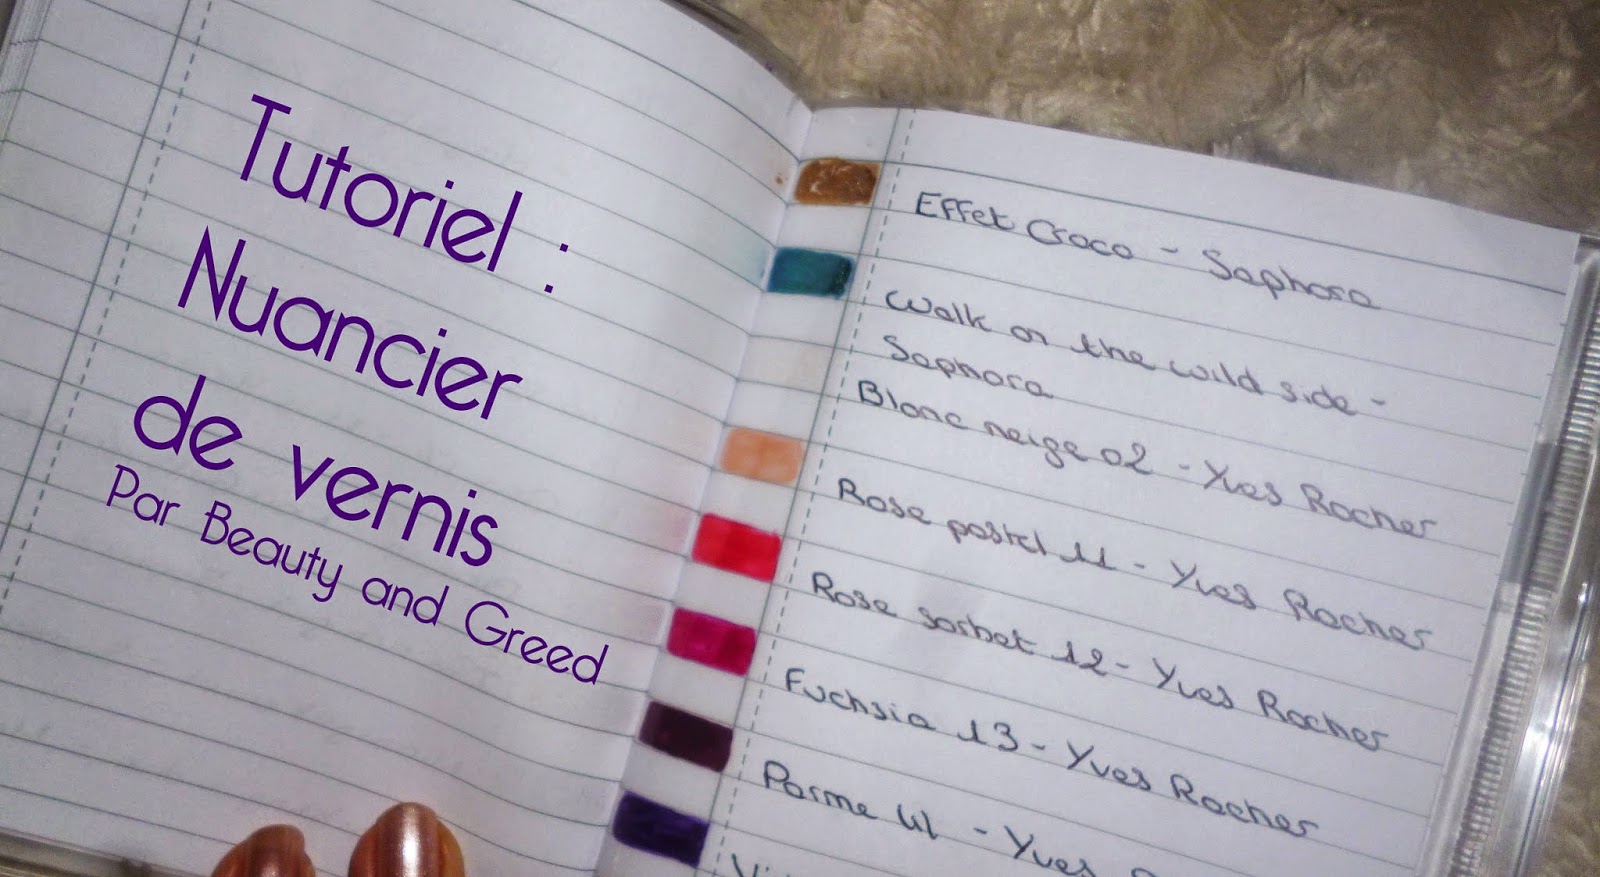 Tutoriel :
Nuancier
de vernis
Par Beauty and Greed
Effet Croco - Saphora
Walk on the wild side -
Saphora
Blanc neige 02 - Yves Rocher
Rose pastel 11 - Yves Rocher
Rose sorbet 12 - Yves Rocher
Fuchsia 13 - Yves Rocher
Parme 41 - Yves